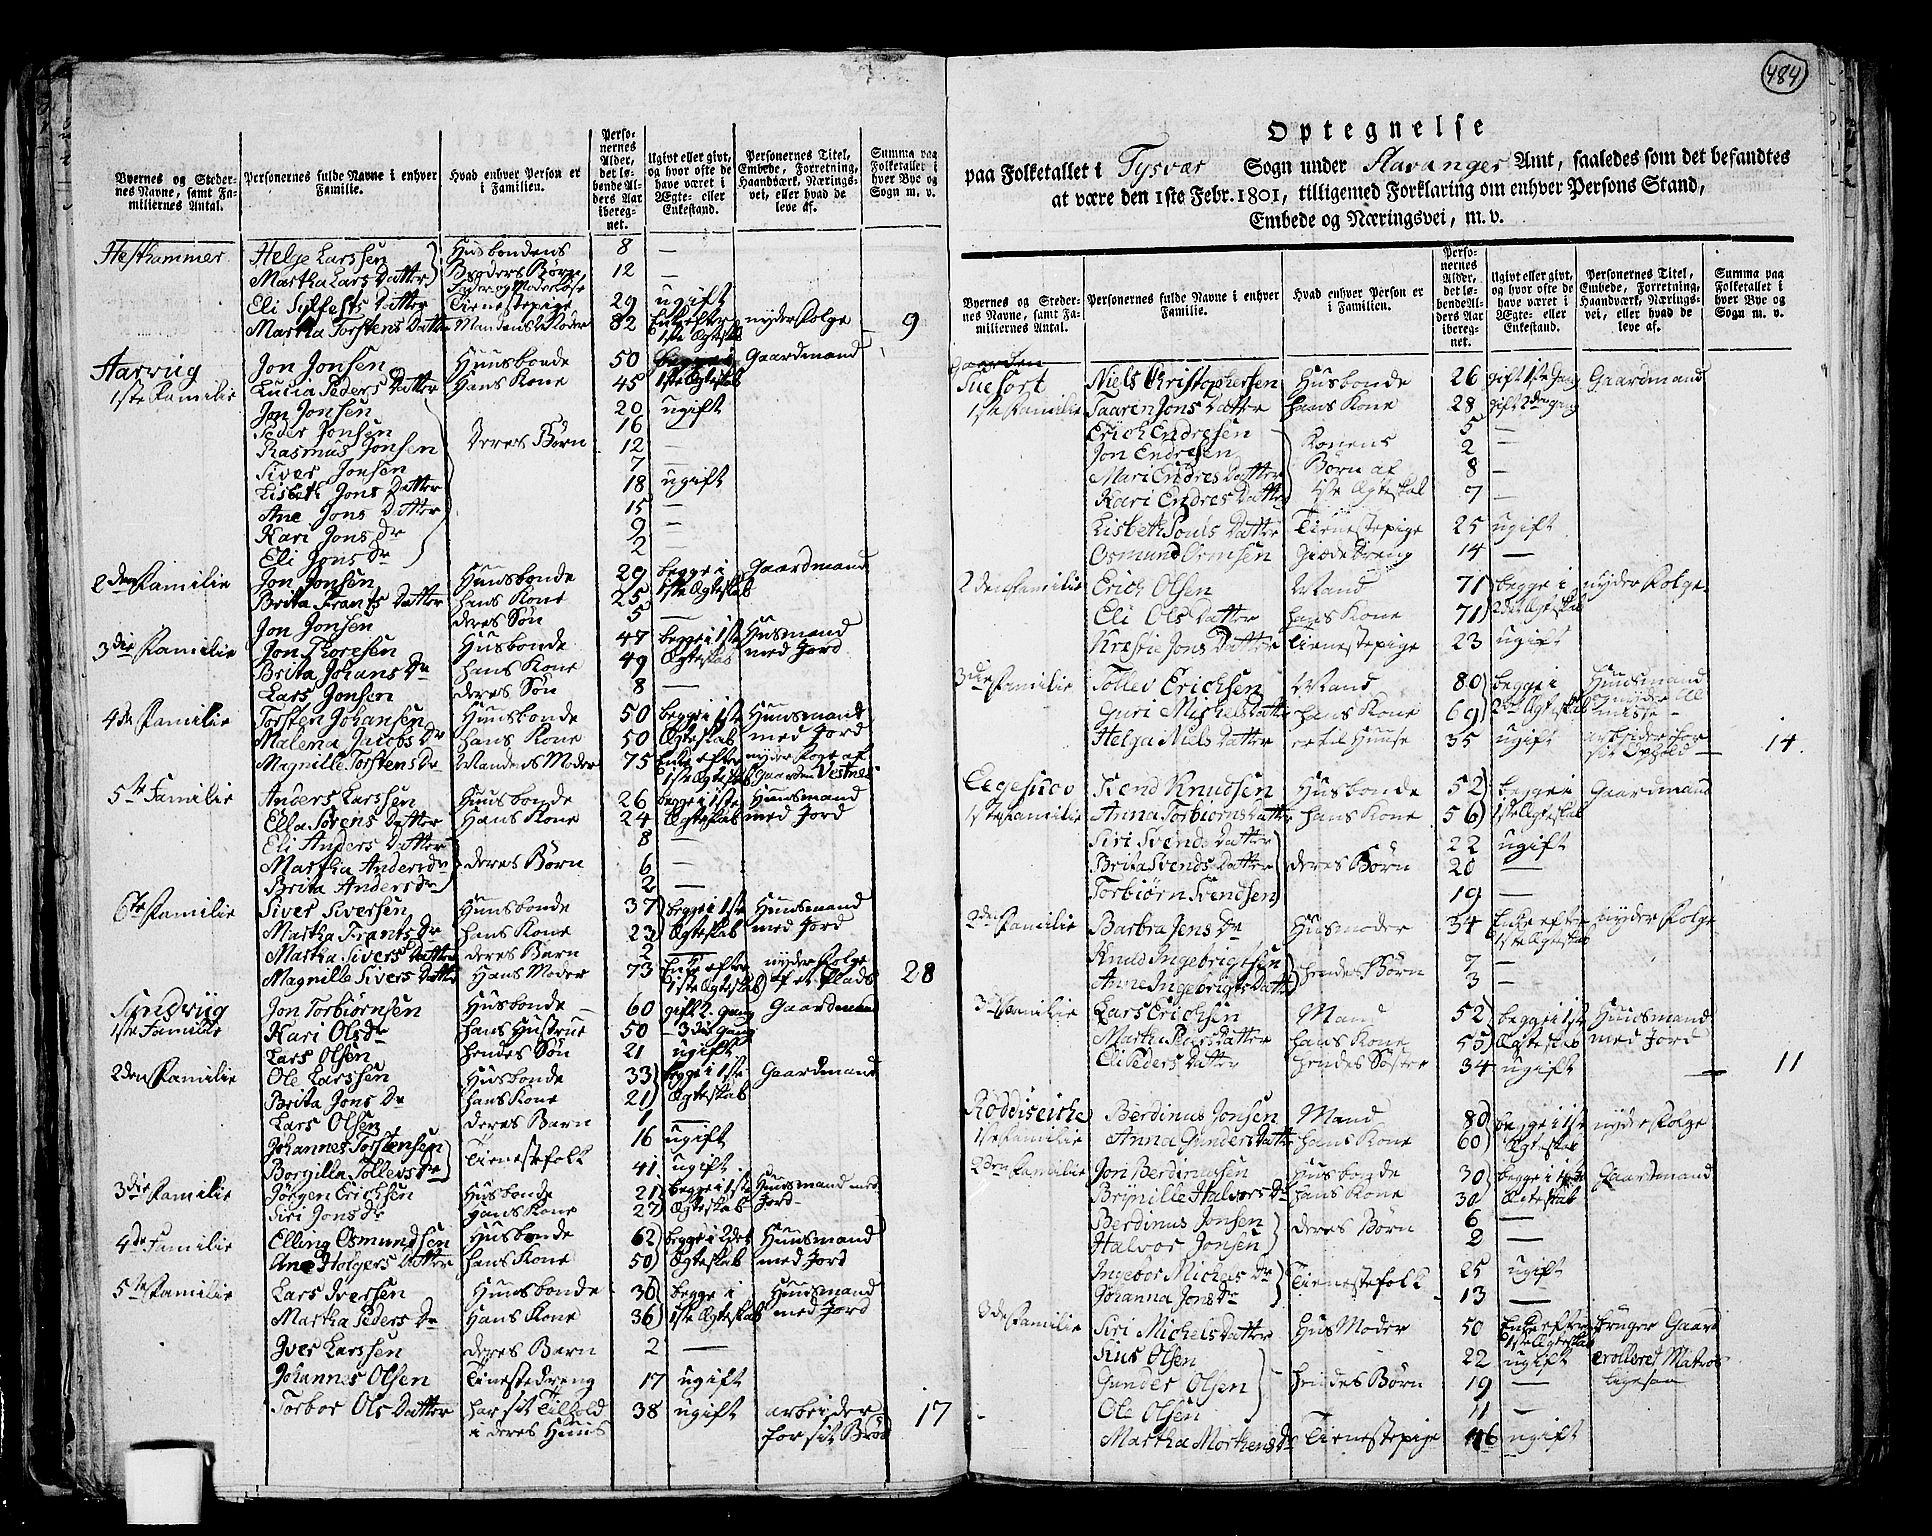 484
Byernes og Stedernes Navne, samt Familiernes Antal.
Personernes fulde Navne i enhver Familie.
Hvad enhver Person er i Familien.
Personernes Alder, det løbende Alders Aar iberegnet.
Ugivt eller givt, og hvor ofte de have været i Ægte- eller Enkestand.
Personernes Titel, Embede, Forretning, Haandværk, Næringsvei, eller hvad de leve af.
Summa paa Folketallet i hver Bye og Sogn m. v.
Hesthammer Helje Larssen Husbondens 8 —
Martha Lars Datter Brøders Børn 12 —
Fader og Moderløse
Eli Sylfests Datter Tienestepige 29 ugift
Martha Torstens Datter Mandens Moder 82 Enke efter 1ste Ægteskab nyder Folge 9
Aarvug Jon Jonsen Huusbonde 50 begge i Gaardmand
1ste Familie Lucia Peders Datter Hans Kone 45 1ste Ægteskab
Jon Jonsen 20 ugift
Peder Jonsen 16
Rasmus Jonsen deres Børn 12 —
Siver Jonsen 7
Lisbeth Jons Datter 18 ugift
Ane Jons Datter 15 —
Kari Jons Dr 9 —
Eli Jons Dr 2 —
2den Familie Jon Jonsen Huusbonde 29 begge i Gaardmand
Brita Frants Datter hans Kone 25 1ste Ægteskab
Jon Jonsen deres Søn 5 —
3die Familie Jon Thoresen Husbonde 47 begge i 1ste Husmand
Brita Johans Dr hans Kone 49 Ægteskab med Jord
Lars Jonsen deres Søn 8 —
4de Familie Torsten Johansen Huusbonde 50 begge i 1ste Huusmand
Malena Jacobs Dr hans Kone 50 Ægteskab med Jord
Magnille Torstens Dr Mandens Moder 75 Enke efter 1ste Ægteskab nyder Folge af Gaarden Vestnes
5te Familie Anders Larssen Huusbonde 26 begge i 1ste Huusmand
Ella Sørens Datter Hans Kone 24 Ægteskab med Jord
Eli Anders Datter 8 —
Martha Anders dr deres Børn 6 —
Brita Anders dr 2 —
6te Familie Siver Siversen Huusbonde 37 begge i 1ste Huusmand
Martha Frants Dr hans Kone 23 Ægteskab med Jord
Martha Sivers Datter deres Barn 2 —
Magnille Sivers Datter Hans Moder 73 Enke efter 1ste Ægteskab nyder Folge af et Plads 28
Sundvug Jon Torbiørnsen Husbonde 60 gift 2. Gang Gaardmand
1ste Familie Kari Ols Dr hans Hustrue 50 — 3die Gang
Lars Olsen hendes Søn 21 ugift
2den Familie Ole Larssen Husbonde 33 begge i 1ste Gaardmand
Brita Jons Dr hans Kone 21 Ægteskab
Lars Olsen deres Barn 1 —
Johannes Torstensen Tienestefolk 16 ugift
Borgilla Tollevs Dr 41 ugift
3die Familie Jörgen Erichsen Husbonde 21 begge i 1ste Huusmand med
Siri Jons Dr Hans Kone 27 Ægteskab Jord
4de Familie Elling Osmundsen Husbonde 62 begge i 2det Huusmand
Ane Holgers Datter hans Kone 50 Ægteskab med Jord
5te Familie Lars Iversen Huusbonde 36 begge i Huusmand
Martha Peders Dr Hans Kone 36 1ste Ægteskab med Jord
Iver Larssen deres Barn 2 —
Johannes Olsen Tienestedreng 17 ugift
Torbor Ols Datter har sit Tilhold 38 ugift arbeider 17
i deres Huus for sit Brød
Optegnelse
paa Folketallet i Tysvær Sogn under Stavanger Amt, saaledes som det befandtes
at være den 1ste Febr. 1801, tilligemed Forklaring om enhver Persons Stand,
Embede og Næringsvei, m. v.
Byernes og Stedernes Navne, samt Familiernes Antal.
Personernes fulde Navne i enhver Familie.
Hvad enhver Person er i Familien.
Personernes Alder, det løbende Alders Aar iberegnet.
Ugivt eller givt, og hvor ofte de have været i Ægte- eller Enkestand.
Personernes Titel, Embede, Forretning, Haandværk, Næringsvei, eller hvad de leve af.
Summa paa Folketallet i hver Bye og Sogn m. v.
Gaarden
Suefort Niels Christophersen Husbonde 26 gift 1ste Gang Gaardmand
1ste Familie Taaren Jons Datter hans Kone 28 gift 2den gang
Erich Endresen 5 —
Jon Endresen Konens 2
Mari Endres Datter Børn af 8 —
Kari Endres Datter 1ste Ægteskab 7 —
Lisbeth Pouls Datter Tienestepige 25 ugift
Osmund Ormsen Giæde Dreng 14 —
2den Familie Erich Olsen Mand 71 begge i nyder Folge
Eli Ols Datter hans Kone 71 2det Ægteskab
Krestie Jons Datter tienestepige 23 ugift
3die Familie Tollev Erichsen Mand 80 begge i Huusmand
Guri Michels datter hans Kone 69 2det Ægteskab
Helga Niels Datter er til Huuse 35 ugift arbeider for sit Ophold 14.
Eegeskov Svend Knudsen Husbonde 52 begge i Gaardmand
1ste Familie Anna Torbiørns Datter hans Kone 56 1ste Ægteskab
Siri Svends Datter 22 ugift
Brita Svends Datter deres Børn 20 —
Torbiørn Svendsen 19 —
2den Familie Barbra Jens Dr Husmoder 34 Enke efter 1ste Ægteskab nyder Folge
Knud Ingebrigtsen hendes Børn 7 —
Anne Ingebrigts Datter 3 —
3die Familie Lars Erichsen Mand 52 begge i 1ste Huusmand
Martha Lars Datter hans Kone 55 Ægteskab med Jord
Eli Peders Datter hendes Søster 34 ugift 11
Røddiseiche Berdinus Jonsen Mand 80 begge i 1ste nyder Folge
1ste Familie Anna Gunders Datter hans Kone 60 Ægteskab
2den Familie Jon Berdinussen Husbonde 30 begge i 1ste Gaardmand
Brynilie Halvors Dr hans Kone 30 Ægteskab
Berdinus Jonsen deres Børn 6 —
Halvor Jonsen 2 —
Ingebor Michels Dr Tienestefolk 25 ugift
Johanna Jons Dr 13 —
3de Familie Siri Michels Datter Hus Moder 50 Enke efter 1ste Ægteskab bruger Gaard
Sius Olsen 22 ugift Enrolleret Matros
Gunder Olsen hendes Børn 19 — ligesaa
Ole Olsen 11 —
Martha Morthens Dr Tienestepige 46 ugift